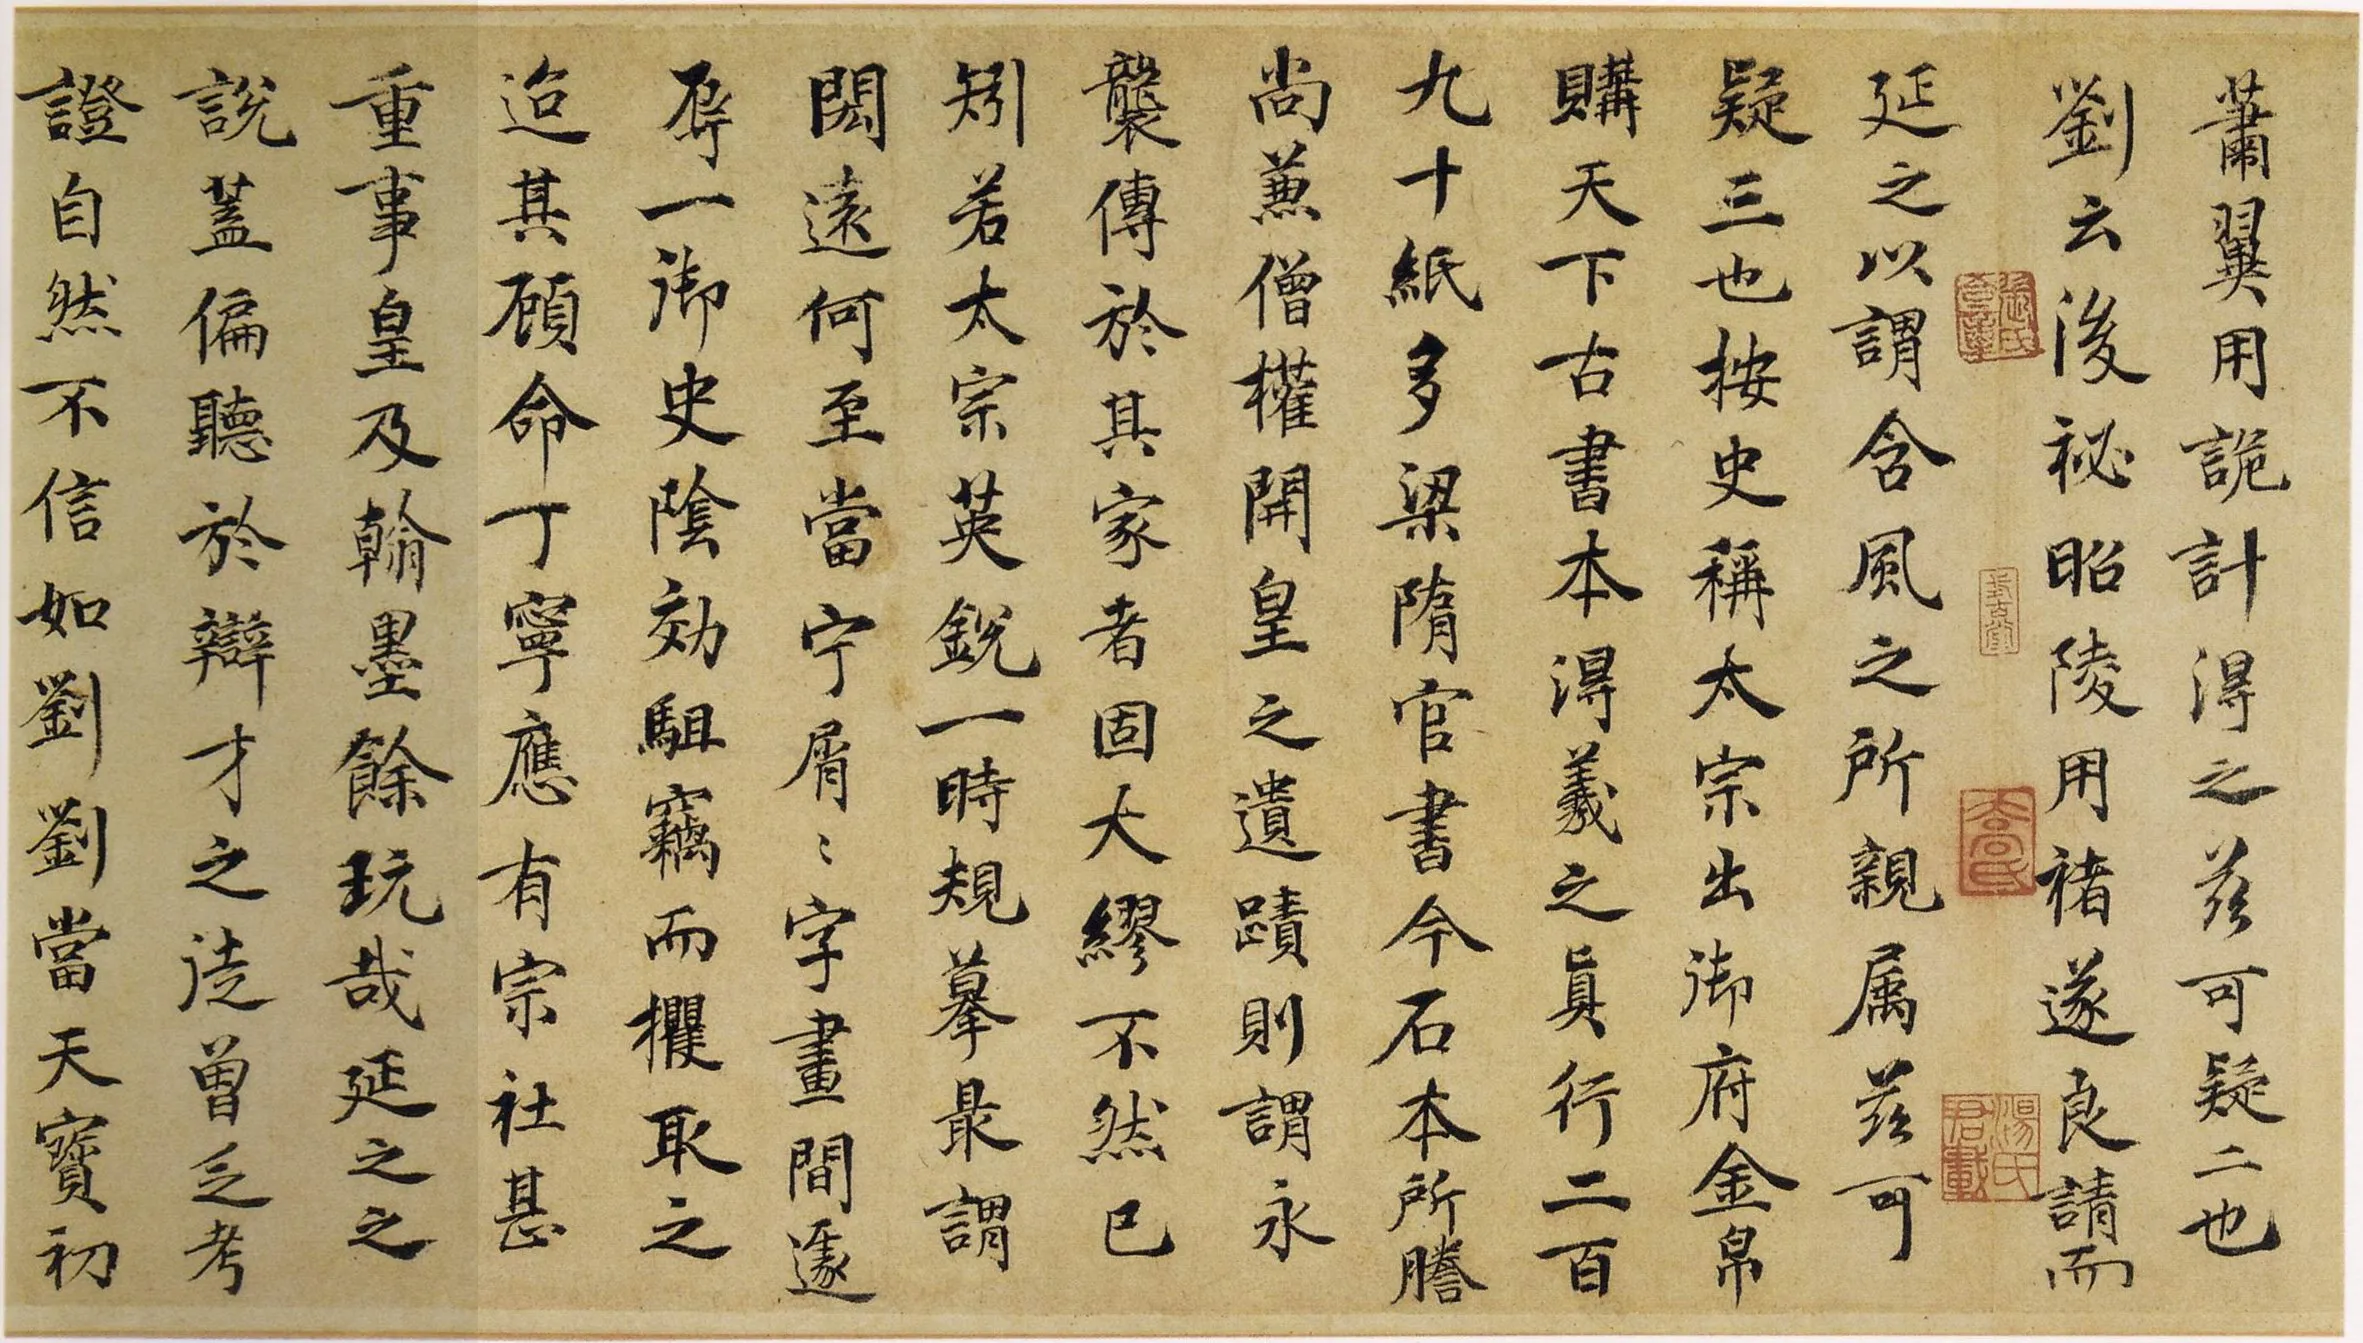 蕭翼用詭計得之茲可疑二也
劉云後祕昭陵用褚遂良請而
延之以謂含風之所親属茲可
疑三也按史稱太宗出御府金帛
購天下古書本得羲之真行二百
九十紙多梁隋官書今石本所謄
尚蕪僧權開皇之遺蹟則謂永
襲傳於其家者固大繆不然已
矧若太宗英銳一時規摹最謂
閎遠何至當宁屑〻字畫間遽
辱一御史陰效駔竊而攫取之
迨其顧命丁寧應有宗社甚
重事皇及翰墨餘玩哉延之之
說蓋偏聽於辯才之徒曾乏考
證自然不信如劉劉當天寶初